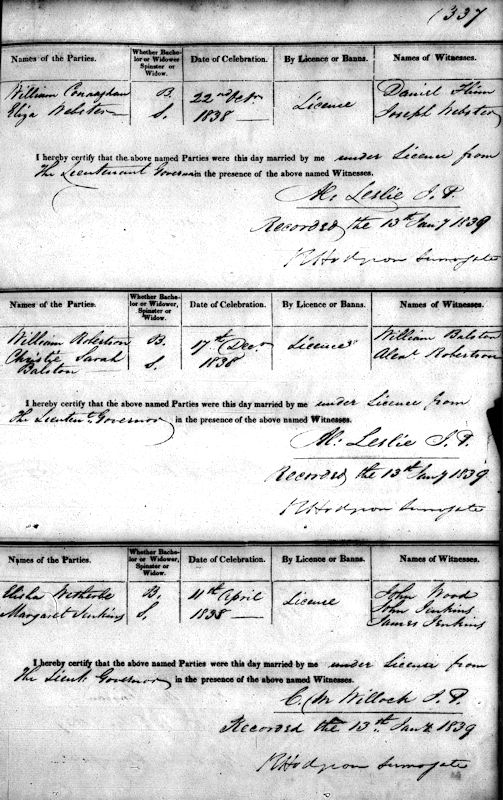 1337
Names of the Parties. Whether Bachelor or Widower Spinster or Widow. Date of Celebration. By Licence or Banns. Names of Witnesses.
William Connaghan B. 22nd 1838 Licence Daniel Flinn
Eliza Webster S. Joseph Webster
I hereby certify that the above named Parties were this day married by me under Licence from
The Lieutenant Governor in the presence of the above named Witnesses.
Leslie J. P.
Recorded the 13th Jany 1839
R Hodgson Surrogate
Names of the Parties. Whether Bachelor or Widower, Spinster or Widow. Date of Celebration. By Licence or Banns. Names of Witnesses.
William Robertson B. 17th Decr 1838 Licence William Balston
Christie Sarah S. Alexr Robertson
Balston
I hereby certify that the above named Parties were this day married by me under Licence from
The Lieutent Governor in the presence of the above named Witnesses.
Leslie J. P.
Recorded the 13th Jany 1839
R Hodgson Surrogate
Names of the Parties. Whether Bachelor or Widower Spinster or Widow. Date of Celebration. By Licence or Banns. Names of Witnesses.
Elisha B. 11th April 1838 Licence John Wood
Margaret Jenkins S. John Jenkins
James Jenkins
I hereby certify that the above named Parties were this day married by me under Licence from
The Lieut Governor in the presence of the above named Witnesses.
Willock J. P.
Recorded the 13th Jany 1839
R Hodgson Surrogate